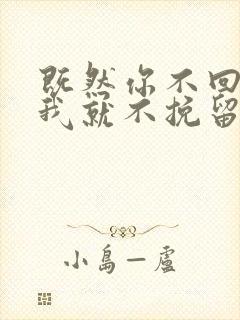 既然你不回
我就不挽留
小島一廬